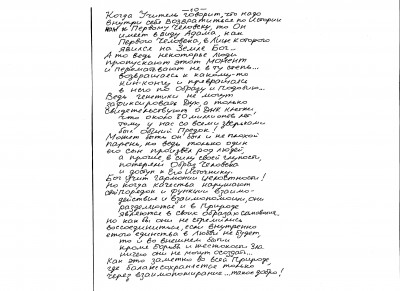 — 10 —
Когда Учитель говорит, что надо
внутри себя возвратиться по Истории
к Первому Человеку, то Он
имеет в виду Адама, как
Первого Человека, в Лице которого
явился на Земле Бог...
А то ведь некоторые люди
пропускают этот момент
и перематывают не в ту степь...
возвращаясь к какому-то
кин-конгу и превращаясь
в него по Образу и Подобию...
Ведь генетики не могут
зафиксировать Дух, а только
свидетельствуют о Духе клетки,
что около 80 миллионов лет
тому у нас со всеми зверями
был общий Предок!
Может быть он был и не плохой
парень, но ведь только один
его сын произвёл род людей,
а прочие в силу своей глупости,
потеряли Образ Человека
и доступ к Его Источнику.
Бог Учит гармонии целостности!
Но когда качества нарушают
порядок и функции взаимо-
действия и взаимопомощи, они
разделяются и в Природе
являются в своих образах сословия.
Но как бы они не стремились
воссоединиться, если внутренно
этого единства в Любви не будет,
то и во внешнем бытии
кроме борьбы и жестокости зла
ничего они не могут создать...
Как это заметно во всей Природе,
где баланс сохраняется только
через взаимопожирание... такое добро!